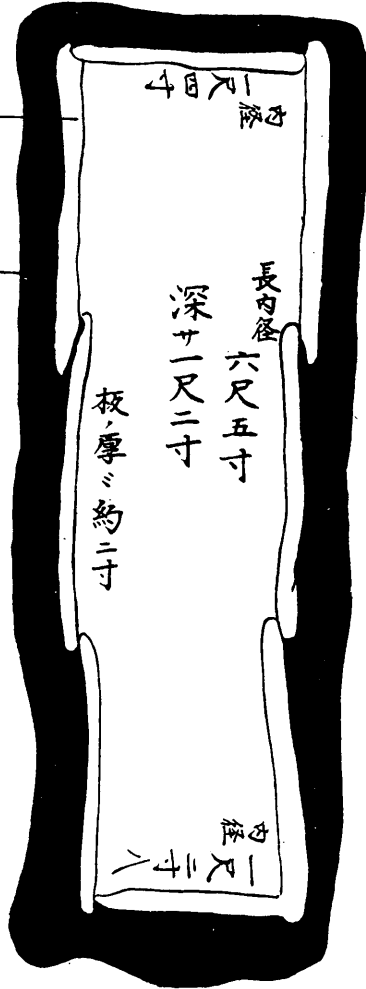 内径
一尺四寸
長内径
六尺五寸
深サ一尺二寸
板ノ厚ミ約二寸
内径
一尺二寸八